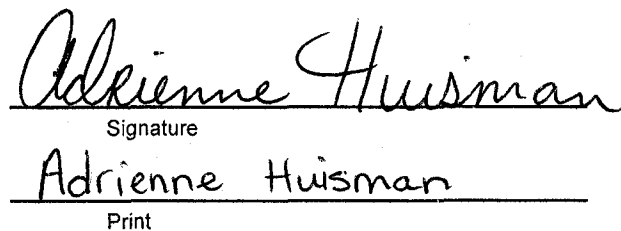 Adrienne Huisman
Signature
Adrienne Huisman
Print